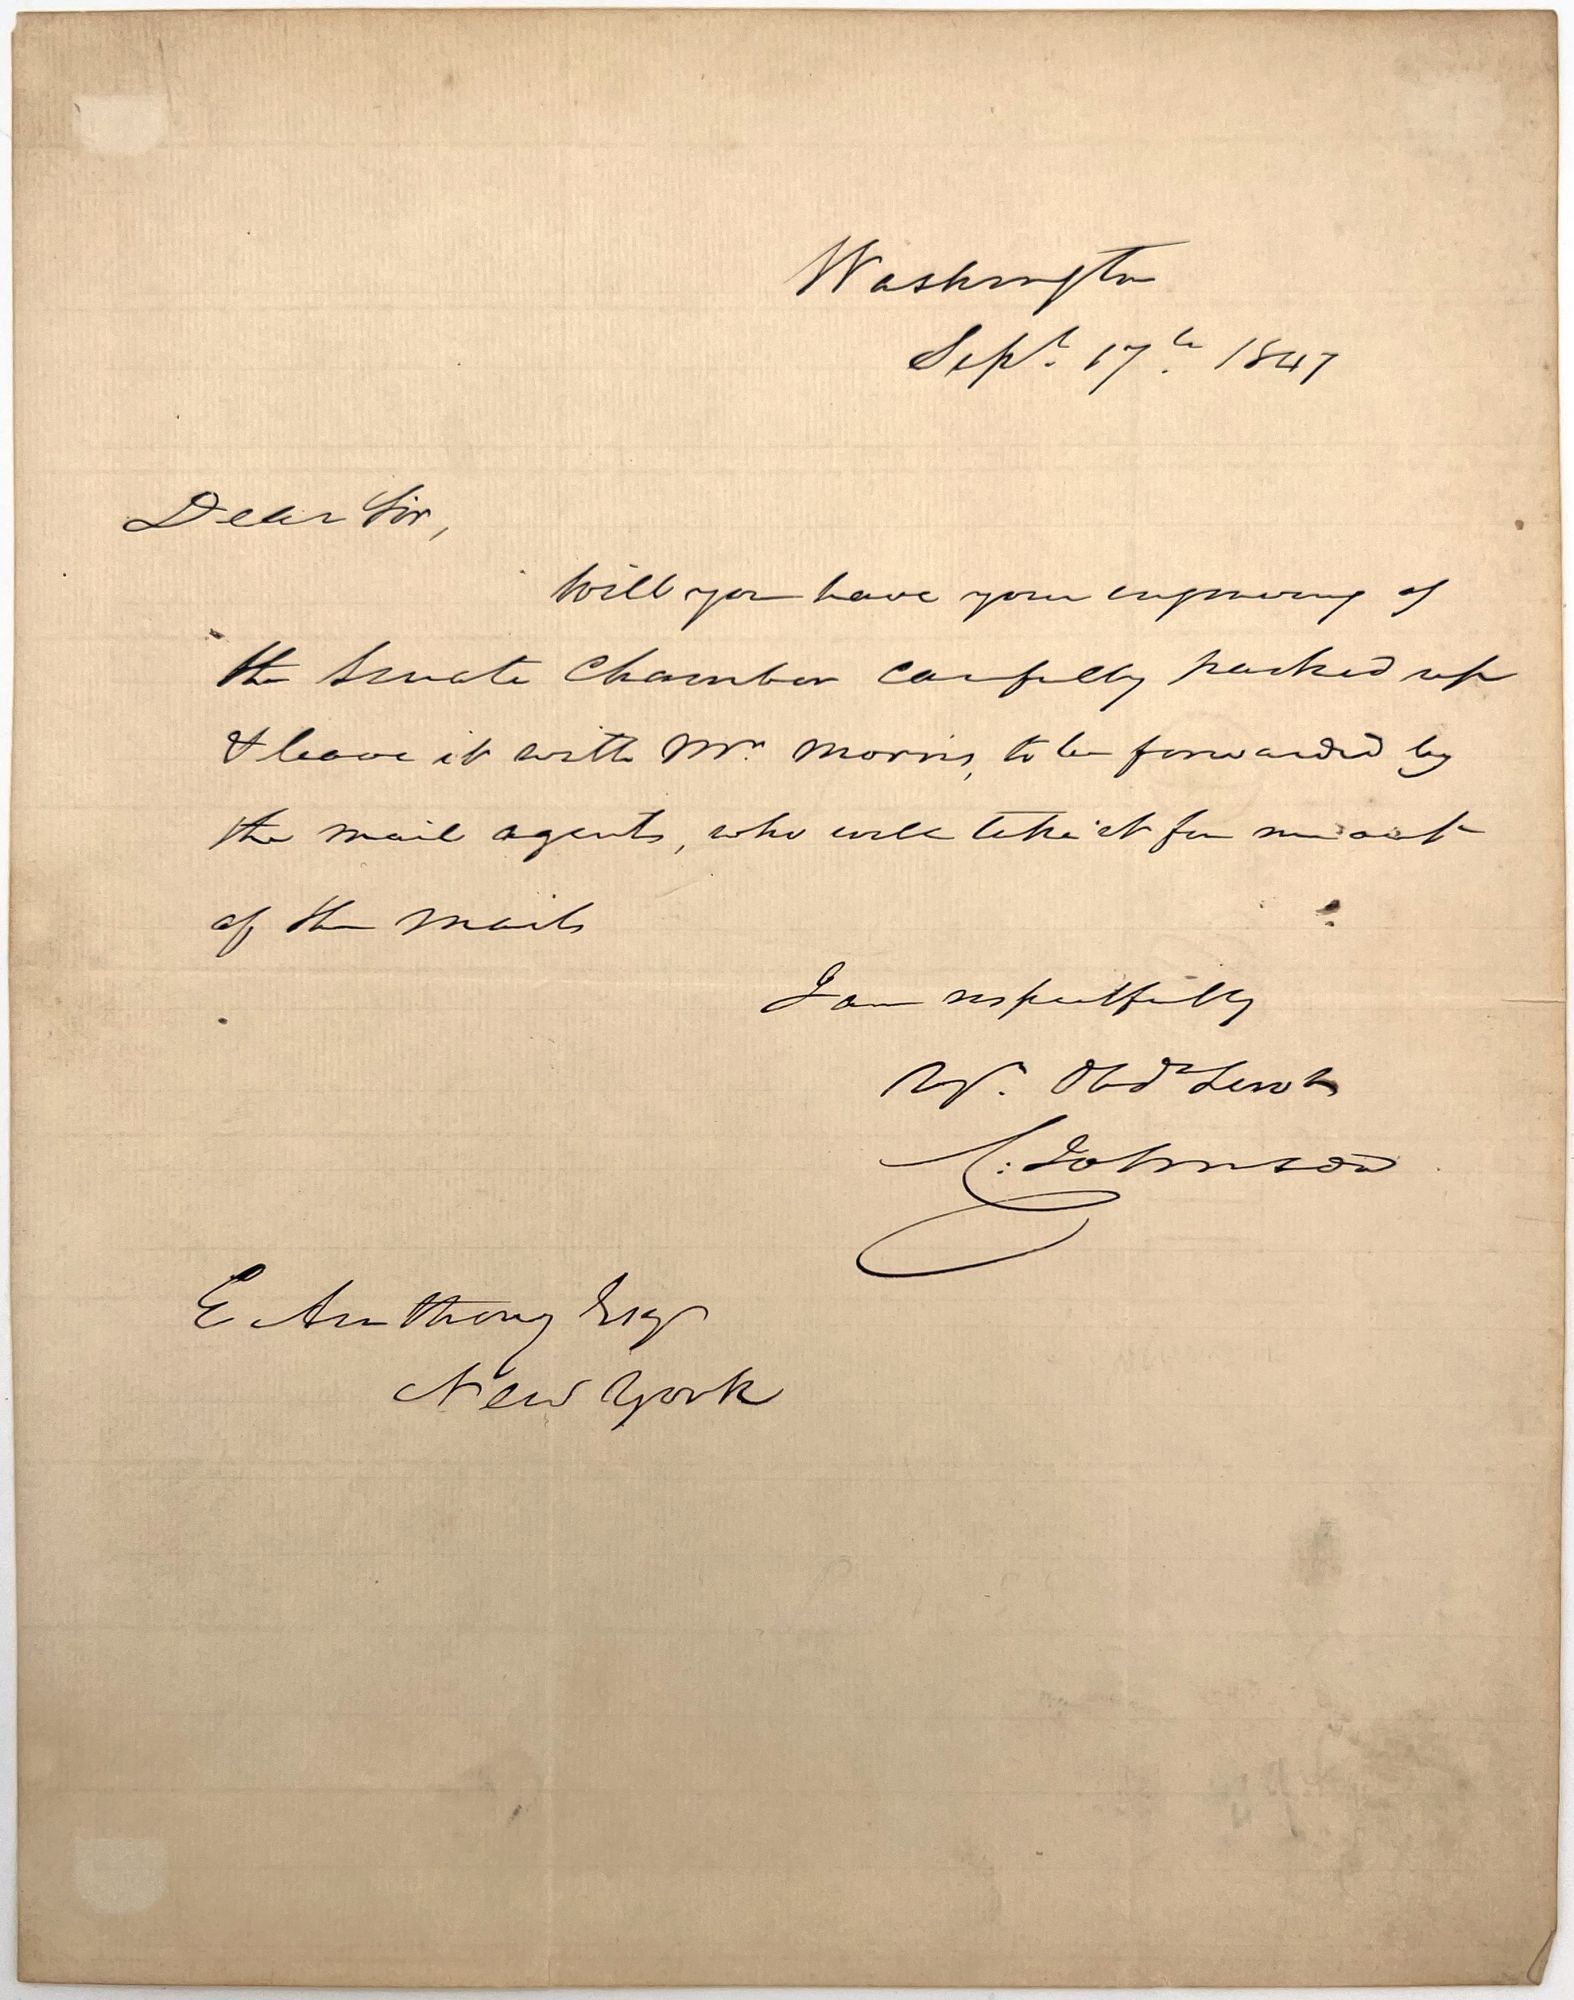 Washington
Sept. 17th. 1847
Dear Sir,
Will you have your engraving of
the Senate Chamber carefully packed up
& leave it with Mr. Morris, to be forwarded by
the mail agents, who will take it for me out
of the mails
I am respectfully
Yr. Obdt Servt
C. Johnson
E Anthony Esqr
New York